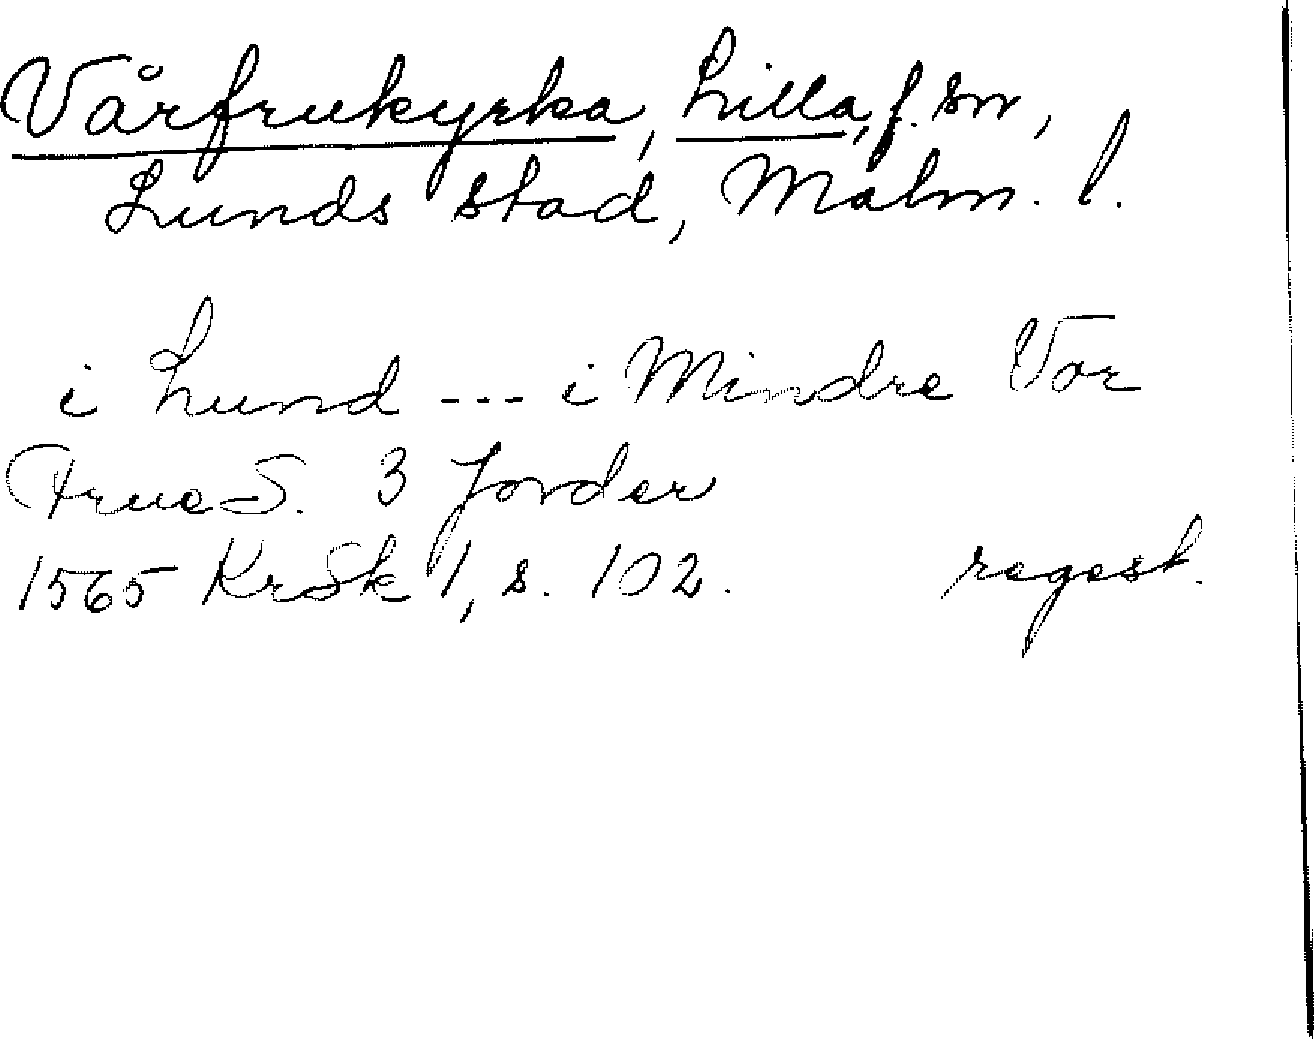 Vårfrukyrka, Lilla, f. sn,
Lunds stad, Malm. l.
i Lund --- i Mindre Vor
Frue S. 3 Jorder
1565 KrSk 1, s. 102. regest.